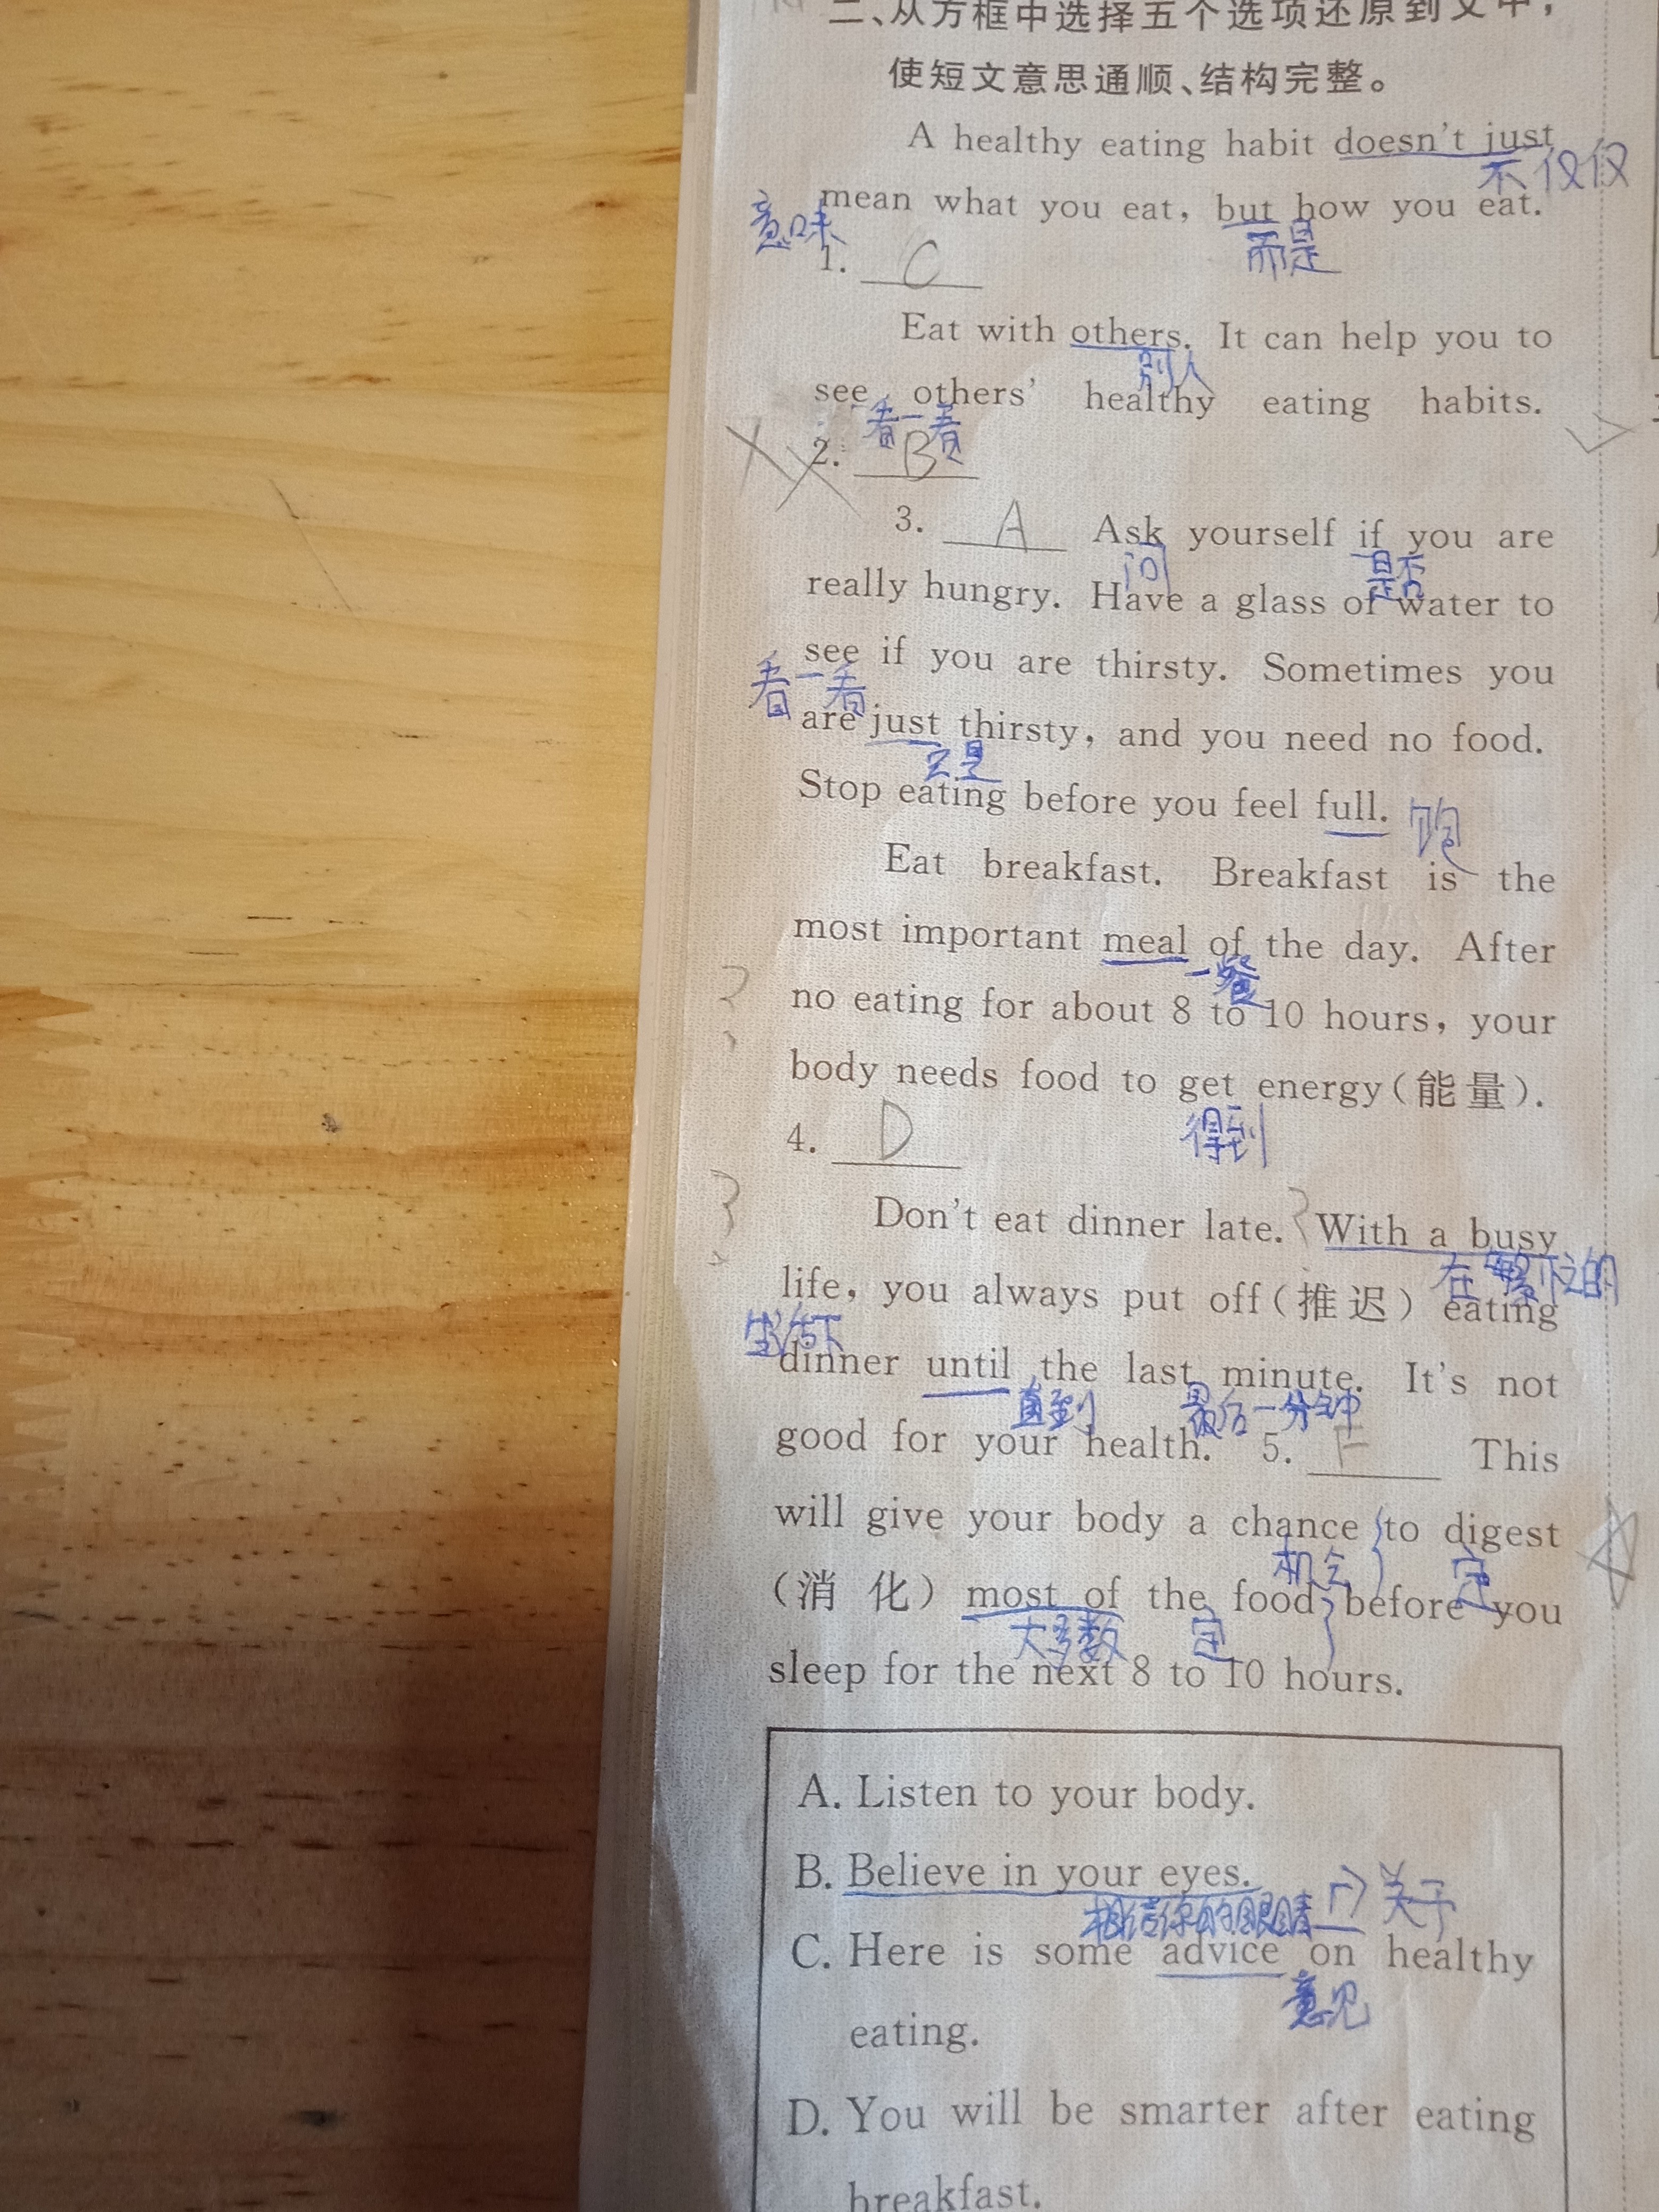 二、从方框中选择五个选项还原到文中,
使短文意思通顺、结构完整。
A healthy eating habit doesn't just
不仅仅
mean what you eat, but how you eat.
意味
而是
1. C
Eat with others. It can help you to
别人
see others' healthy eating habits.
看一看
2. B
3. A Ask yourself if you are
问
是否
really hungry. Have a glass of water to
see if you are thirsty. Sometimes you
看一看
are just thirsty, and you need no food.
只是
Stop eating before you feel full.
饱
Eat breakfast. Breakfast is the
most important meal of the day. After
一餐
no eating for about 8 to 10 hours, your
body needs food to get energy(能量).
得到
4. D
Don't eat dinner late. With a busy
life, you always put off(推迟) eating
生活下
dinner until the last minute. It's not
直到
最后一分钟
good for your health. 5. F This
will give your body a chance to digest
机会
定
(消化) most of the food before you
大多数
定
sleep for the next 8 to 10 hours.
A. Listen to your body.
B. Believe in your eyes.
相信你的眼睛
关于
C. Here is some advice on healthy
意见
eating.
D. You will be smarter after eating
breakfast.